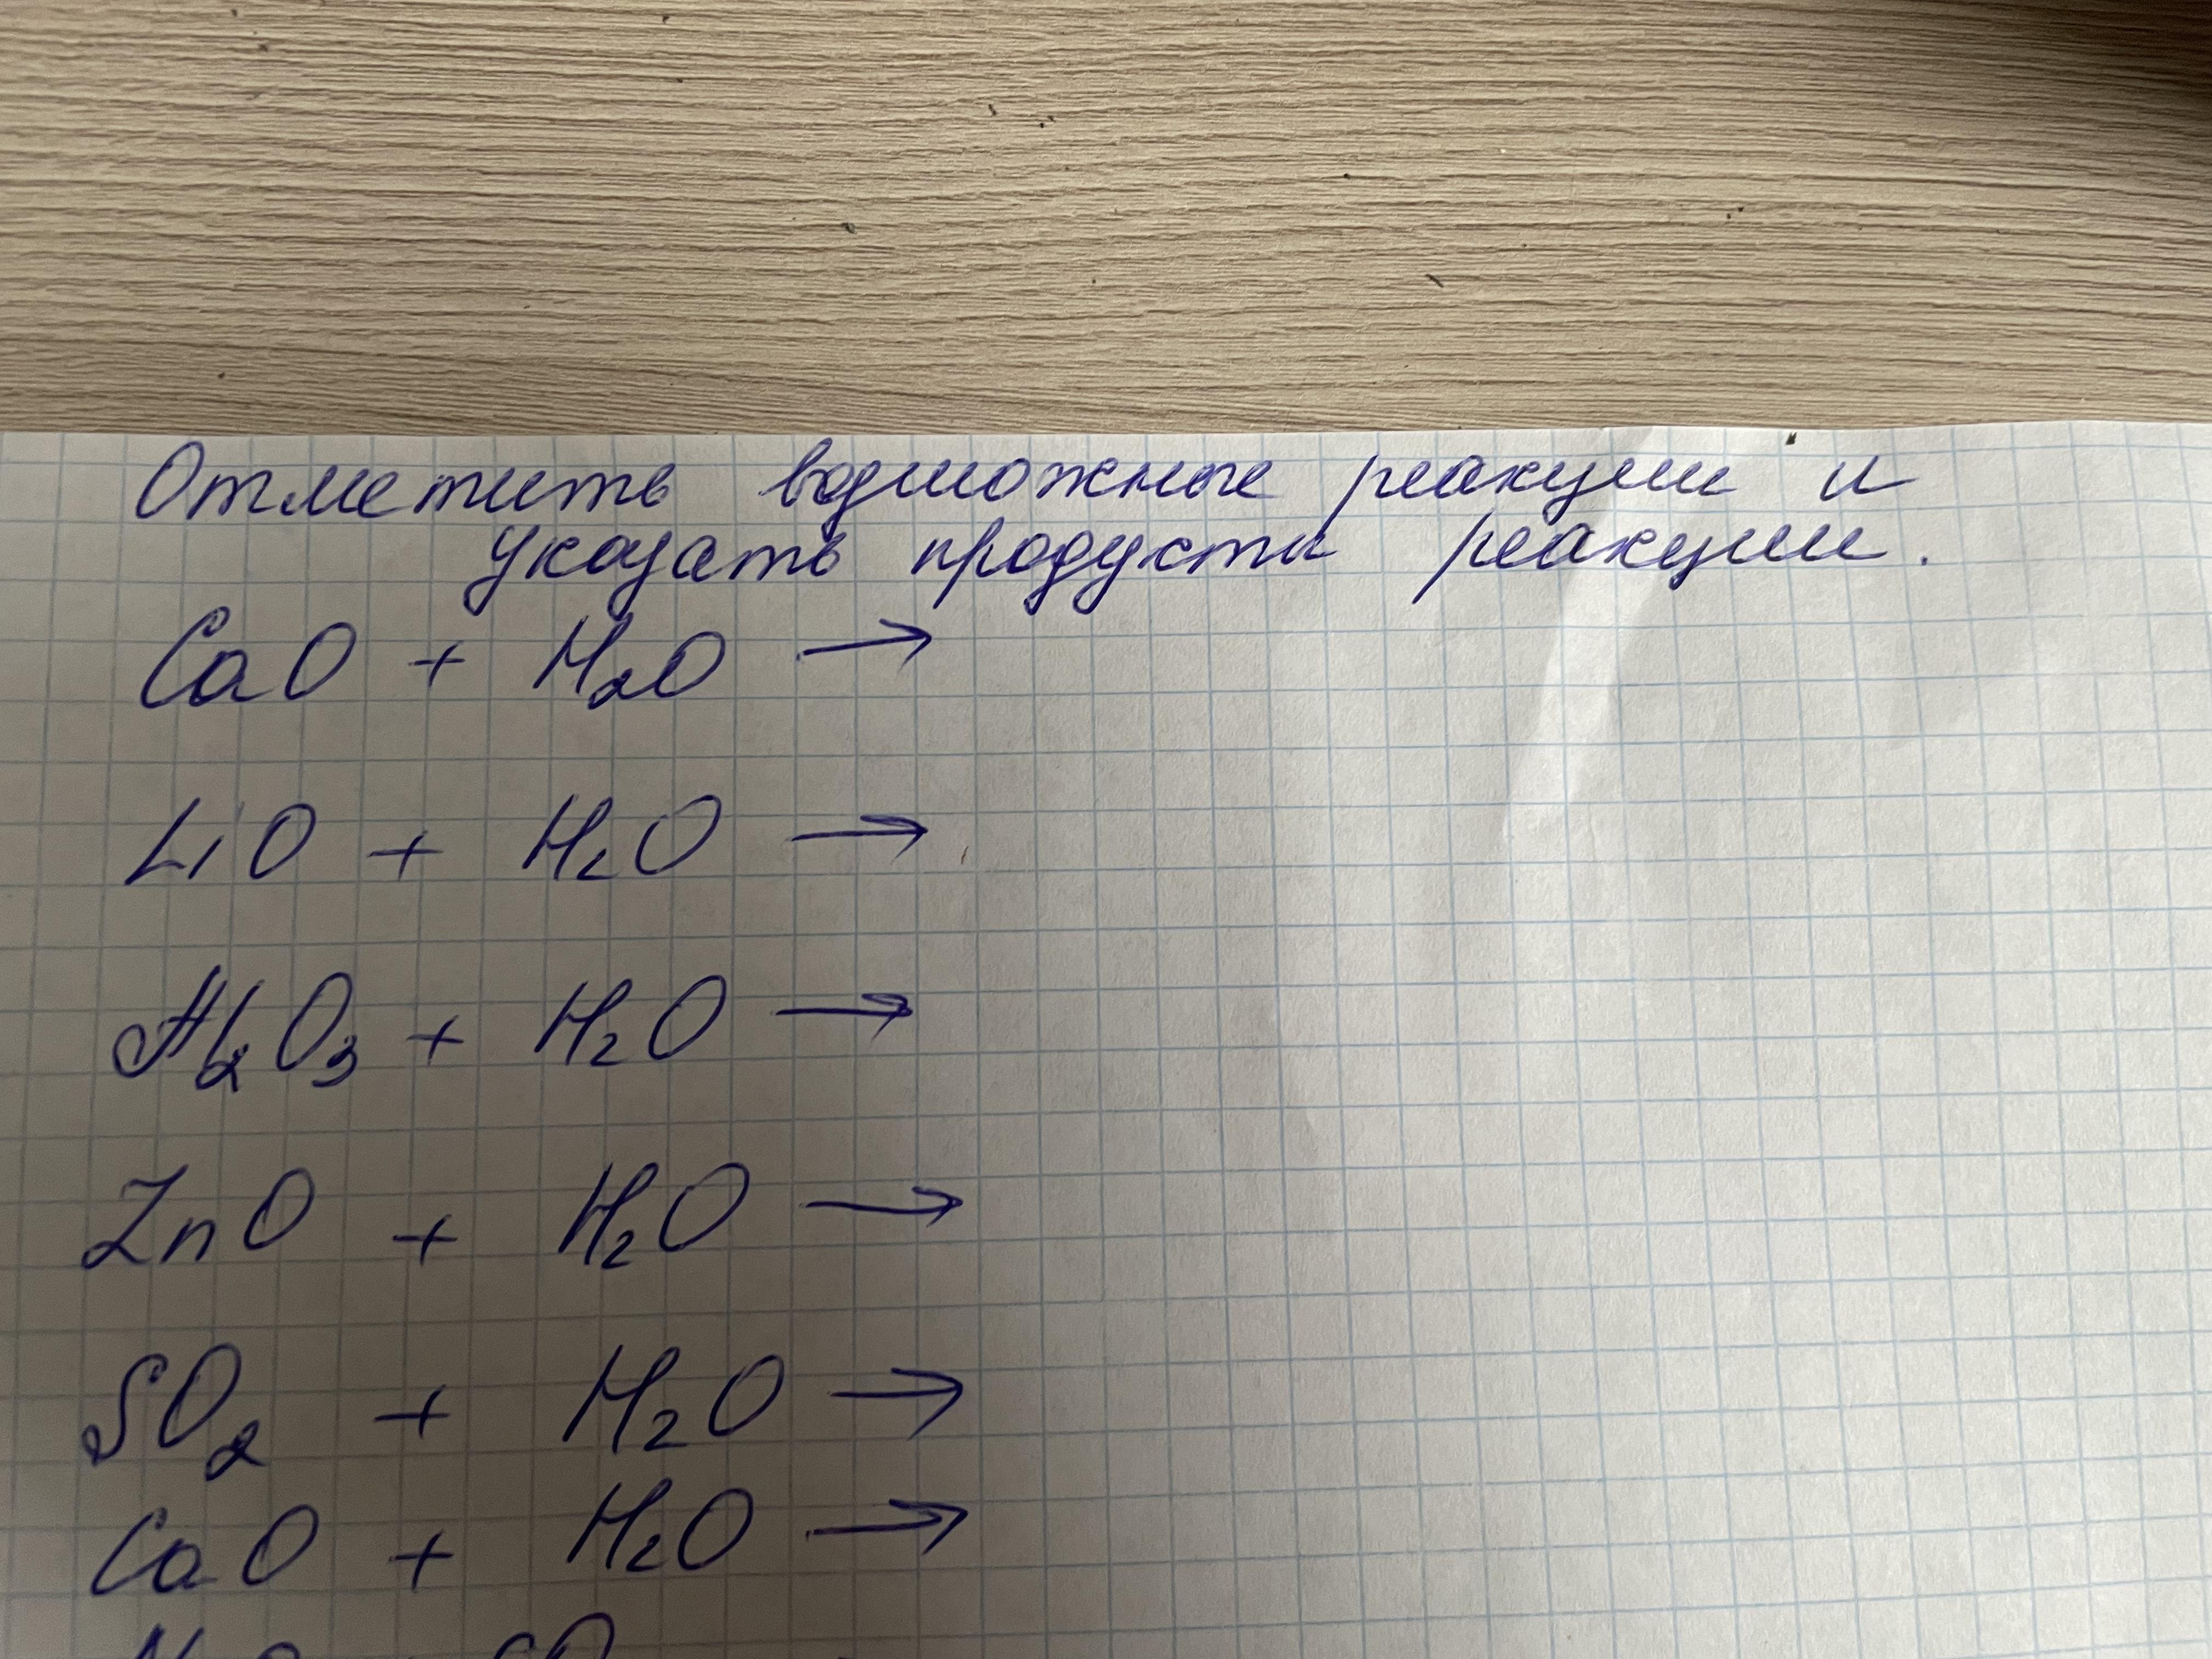 Отметить возможные реакции и
указать продукты реакции.
CaO + H₂O →
LiO + H₂O →
Al₂O₃ + H₂O →
ZnO + H₂O →
SO₂ + H₂O →
CaO + H₂O →